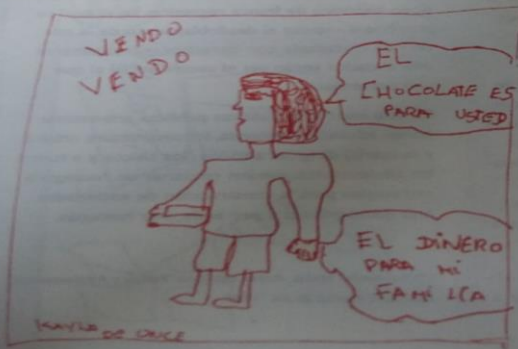 VENDO
VENDO
EL
CHOCOLATE ES
PARA USTED
EL DINERO
PARA MI
FAMILIA
DE